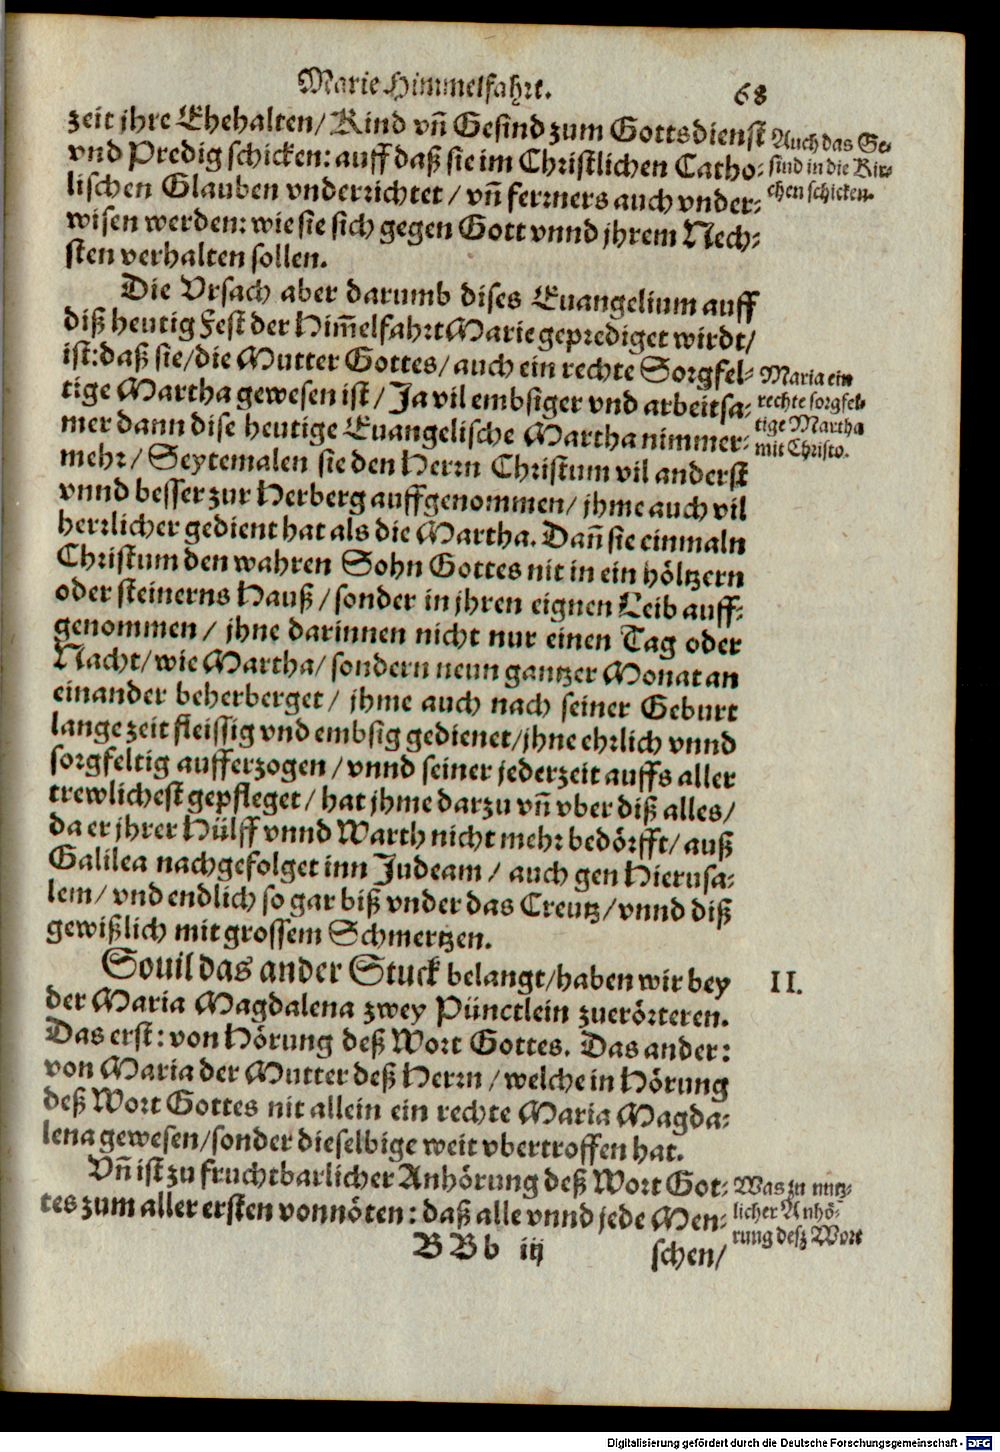 Marie Himmelfahrt. 68
zeit jhre Ehehalten/ Kind vnd̃ Gesind zum Gottsdienst
vnd Predig schicken: auff daß sie im Christlichen Catho-
lischen Glauben vnderrichtet / vñ ferrners auch vnder-
wisen werden: wie sie sich gegen Gott vnnd jhrem Nech-
sten verhalten sollen.
Auch das Ge-
sind in die Kir-
chen schicken.
Die Vrsach aber darumb dises Euangelium auff
diß heutig Fest der Him̃elfahrt Marie geprediget wirdt/
ist: daß sie/die Mutter Gottes/ auch ein rechte Sorgfel-
tige Martha gewesen ist/ Ja vil embsiger vnd arbeitsa-
mer dann dise heutige Euangelische Martha nimmer-
mehr/ Seytemalen sie den Herrn Christum vil anderst
vnnd besser zur Herberg auffgenommen/ jhme auch vil
herrlicher gedient hat als die Martha. Dañ sie einmaln
Christum den wahren Sohn Gottes nit in ein höltzern
oder steinerns Hauß/ sonder in jhren eignen Leib auff-
genommen/ jhne darinnen nicht nur einen Tag oder
Nacht/ wie Martha/ sondern neun gantzer Monat an
einander beherberget/ jhme auch nach seiner Geburt
lange zeit fleissig vnd embsig gedienet/jhne ehrlich vnnd
sorgfeltig aufferzogen/ vnnd seiner jederzeit auffs aller
trewlichest gepfleget/ hat jhme darzu vñ vber diß alles/
da er jhrer Hülff vnnd Warth nicht mehr bedörfft/ auß
Galilea nachgefolget inn Judeam/ auch gen Hierusa-
lem/ vnd endlich so gar biß vnder das Creutz/ vnnd diß
gewißlich mit grossem Schmertzen.
Maria ein
rechte sorgfel-
tige Martha
mit Christo.
Souil das ander Stuck belangt/haben wir bey
der Maria Magdalena zwey Pünctlein zuerörteren.
Das erst: von Hörung deß Wort Gottes. Das ander:
von Maria der Mutter deß Herrn/ welche in Hörung
deß Wort Gottes nit allein ein rechte Maria Magda-
lena gewesen/sonder dieselbige weit vbertroffen hat.
II.
Vñ ist zu fruchtbarlicher Anhörung deß Wort Got-
tes zum aller ersten vonnöten: daß alle vnnd jede Men-
Was zu nutz-
licher Anhö-
rung desz Wort
BBb iij schen/
Digitalisierung gefördert durch die Deutsche Forschungsgemeinschaft - DFG